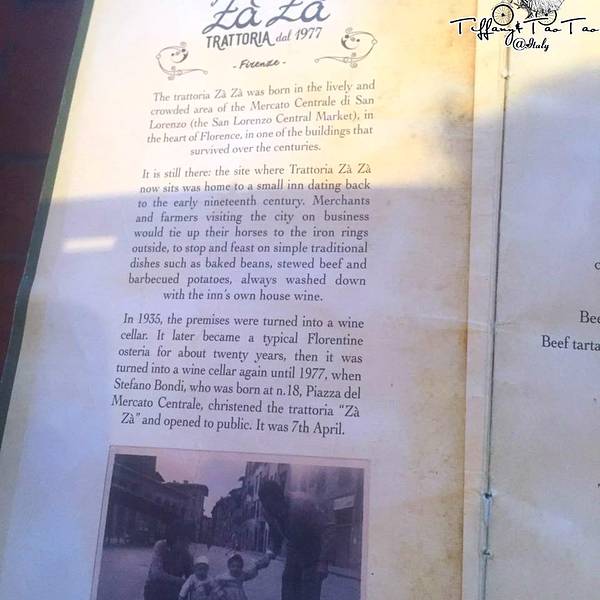 Zà Zà
TRATTORIA dal 1977
- Firenze -
Tiffany & Tao Tao
@Italy
The trattoria Zà Zà was born in the lively and
crowded area of the Mercato Centrale di San
Lorenzo (the San Lorenzo Central Market), in
the heart of Florence, in one of the buildings that
survived over the centuries.
It is still there: the site where Trattoria Zà Zà
now sits was home to a small inn dating back
to the early nineteenth century. Merchants
and farmers visiting the city on business
would tie up their horses to the iron rings
outside, to stop and feast on simple traditional
dishes such as baked beans, stewed beef and
barbecued potatoes, always washed down
with the inn's own house wine.
In 1935, the premises were turned into a wine
cellar. It later became a typical Florentine
osteria for about twenty years, then it was
turned into a wine cellar again until 1977, when
Stefano Bondi, who was born at n.18, Piazza del
Mercato Centrale, christened the trattoria "Zà
Zà" and opened to public. It was 7th April.
Bee
Beef tarta